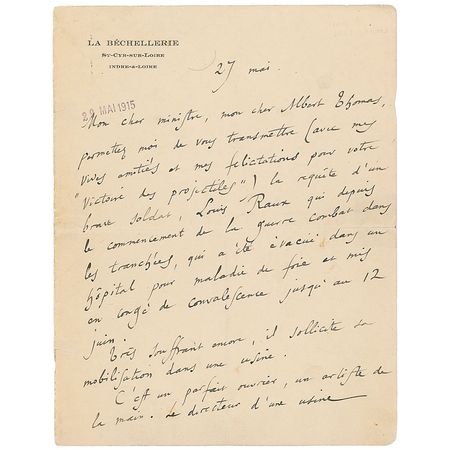 LA BÉCHELLERIE
St-Cyr-sur-Loire
Indre-&-Loire
27 mai.
29 MAI 1915
Mon cher ministre, mon cher Albert Thomas,
permettez moi de vous transmettre (avec mes
vives amitiés et mes félicitations pour votre
"Victoire des projectiles") la requête d'un
brave soldat, Louis Raux qui depuis
le commencement de la guerre combat dans
les tranchées, qui a été évacué dans un
hôpital pour maladie de foie et mis
en congé de convalescence jusqu'au 12
juin.
Très souffrant encore, il sollicite sa
mobilisation dans une usine.
C'est un parfait ouvrier, un artiste de
la main. Le directeur d'une usine